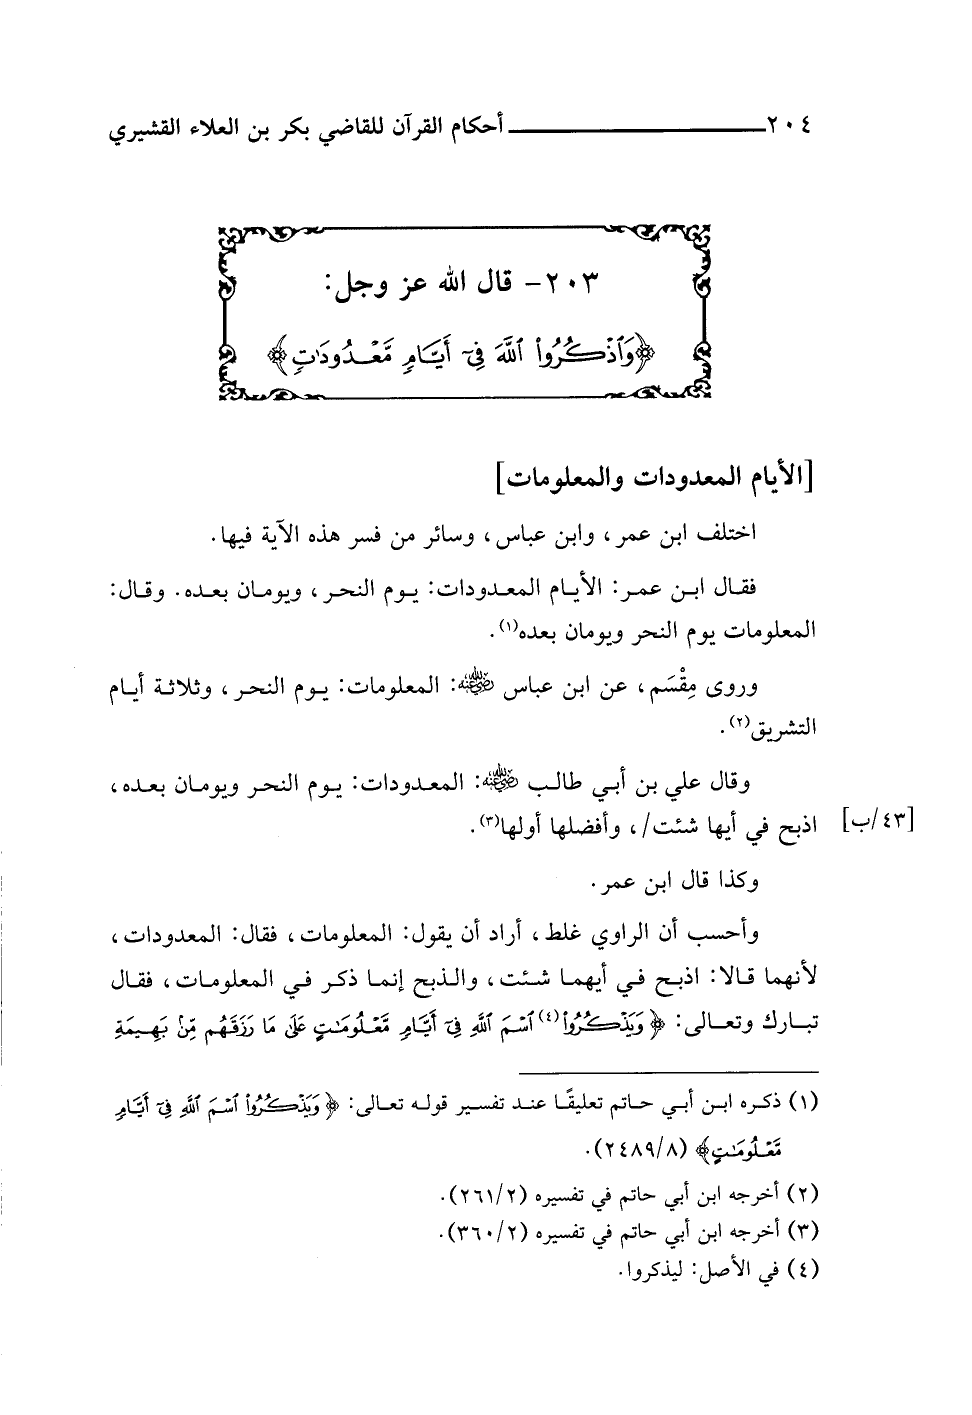 ٢٠٤ أحكام القرآن للقاضي بكر بن العلاء القشيري
٢٠٣- قال الله عز وجل:
﴿وَٱذْكُرُوا۟ ٱللَّهَ فِىٓ أَيَّامٍ مَّعْدُودَٰتٍ﴾
[الأيام المعدودات والمعلومات]
اختلف ابن عمر، وابن عباس، وسائر من فسر هذه الآية فيها.
فقال ابن عمر: الأيام المعدودات: يوم النحر، ويومان بعده. وقال:
المعلومات يوم النحر ويومان بعده(١).
وروى مِقْسَم، عن ابن عباس رضي الله عنه: المعلومات: يوم النحر، وثلاثة أيام
التشريق(٢).
وقال علي بن أبي طالب رضي الله عنه: المعدودات: يوم النحر ويومان بعده،
اذبح في أيها شئت/، وأفضلها أولها(٣).
[٤٣/ب]
وكذا قال ابن عمر.
وأحسب أن الراوي غلط، أراد أن يقول: المعلومات، فقال: المعدودات،
لأنهما قالا: اذبح في أيهما شئت، والذبح إنما ذكر في المعلومات، فقال
تبارك وتعالى: ﴿وَيَذْكُرُوا۟(٤) ٱسْمَ ٱللَّهِ فِىٓ أَيَّامٍ مَّعْلُومَٰتٍ عَلَىٰ مَا رَزَقَهُم مِّنۢ بَهِيمَةِ
(١) ذكره ابن أبي حاتم تعليقًا عند تفسير قوله تعالى: ﴿وَيَذْكُرُوا۟ ٱسْمَ ٱللَّهِ فِىٓ أَيَّامٍ
مَّعْلُومَٰتٍ﴾ (٢٤٨٩/٨).
(٢) أخرجه ابن أبي حاتم في تفسيره (٢٦١/٢).
(٣) أخرجه ابن أبي حاتم في تفسيره (٣٦٠/٢).
(٤) في الأصل: ليذكروا.